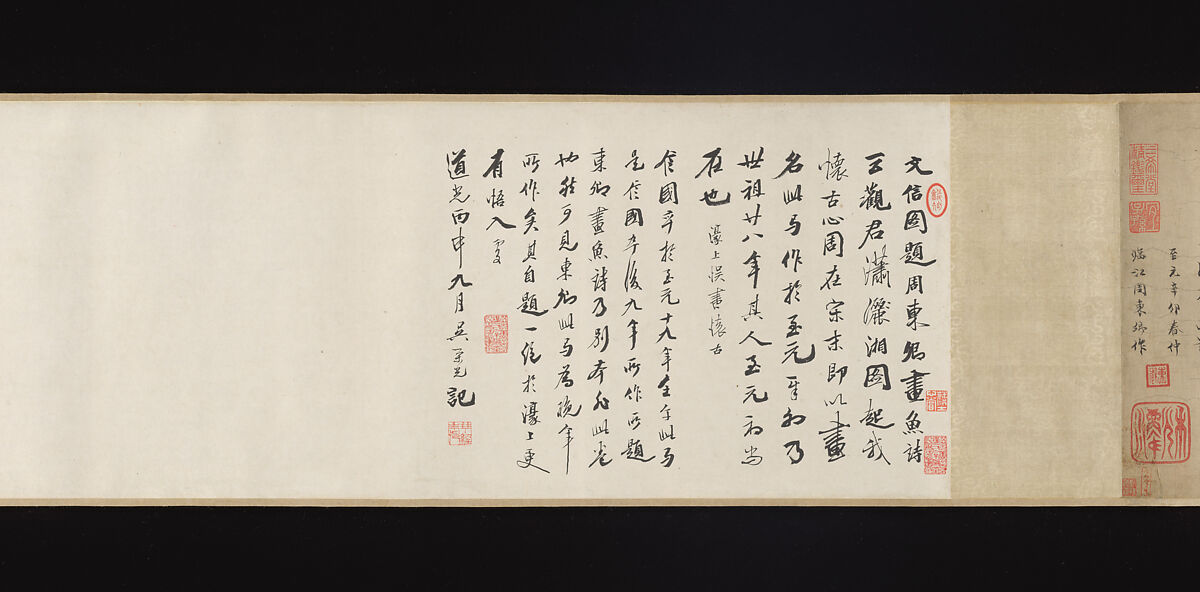 三希堂精鑑璽
宜子孫
至元辛卯春仲
臨江周東卿作
文信國題周東卿畫魚詩
云觀君瀟灑湘圖起我
懷古心周在宋末即以畫
名此弓作於至元辛卯乃
世祖廿八年其人至元初尚
在也 濠上悞書懷古
信國卒於至元十九年壬午此弓
是信國卒後九年所作所題
東卿畫魚詩乃別本非此卷
也然可見東卿此弓為晚年
所作矣其自題一絕於濠上更
有悟入處
道光丙申九月吳榮光記